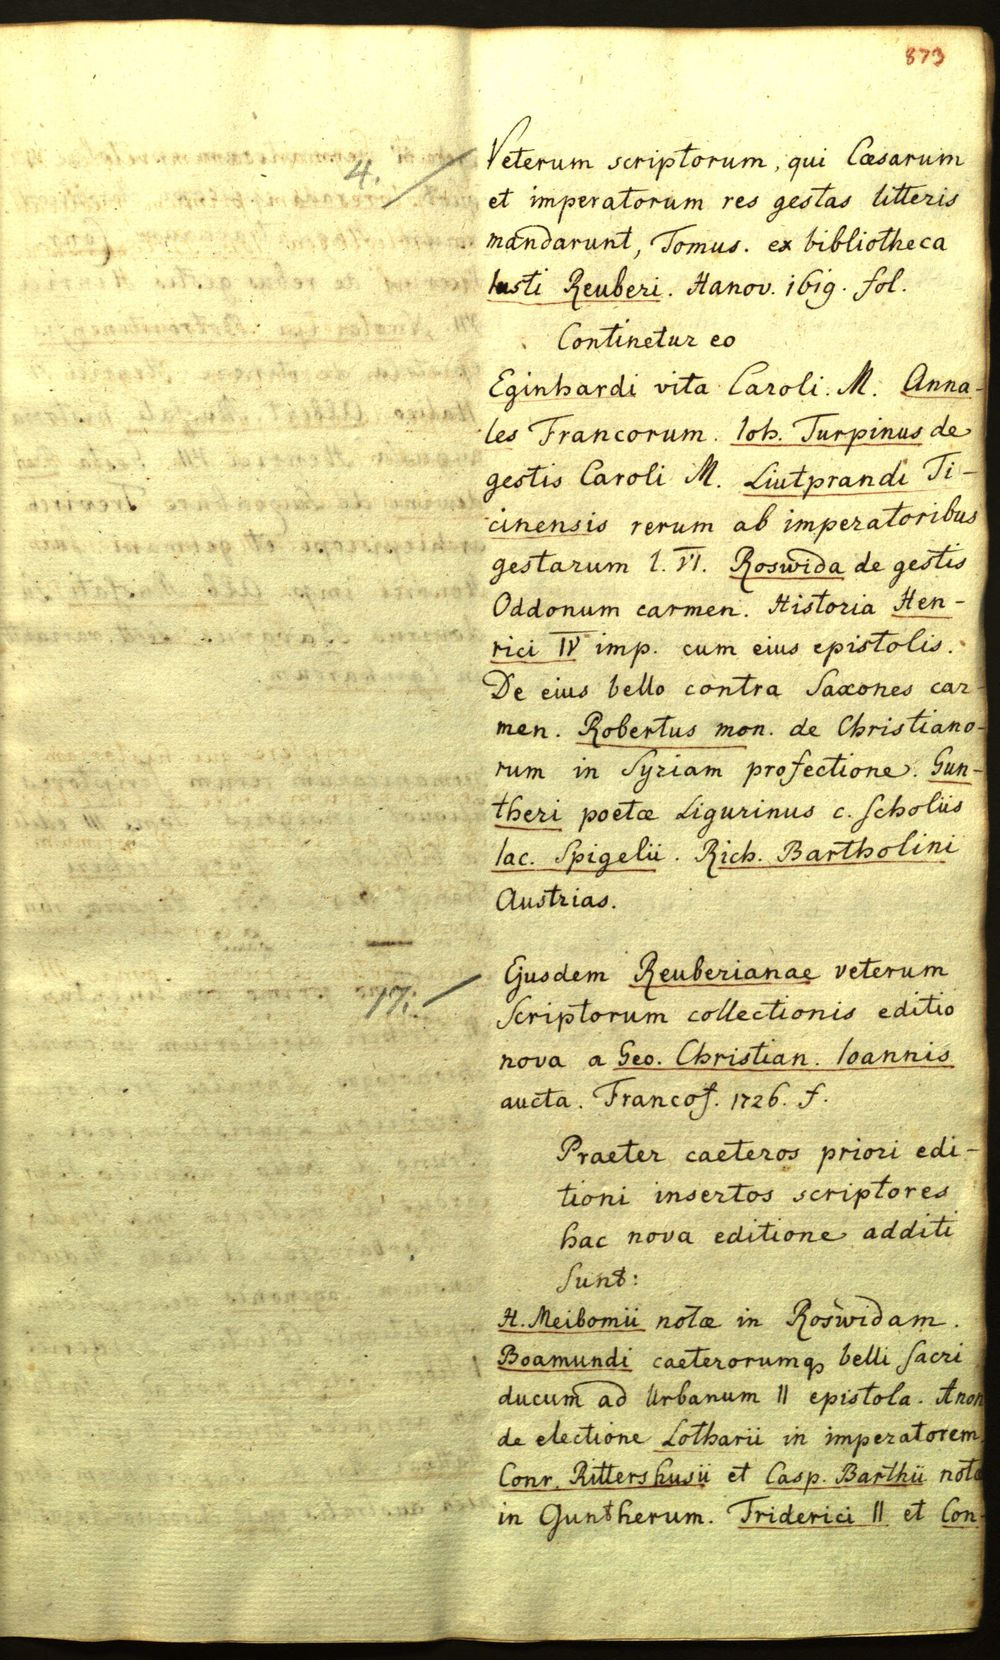 873
4. Veterum scriptorum, qui Cæsarum
et imperatorum res gestas litteris
mandarunt, Tomus. ex bibliotheca
Iusti Reuberi. Hanov. 1619. fol.
Continetur eo
Eginhardi vita Caroli. M. Anna-
les Francorum. Ioh. Turpinus de
gestis Caroli M. Liutprandi Ti-
cinensis rerum ab imperatoribus
gestarum l. VI. Roswida de gestis
Oddonum carmen. Historia Hen-
rici IV imp. cum eius epistolis.
De eius bello contra Saxones car-
men. Robertus mon. de Christiano-
rum in Syriam profectione. Gun-
theri poetæ Ligurinus c. scholiis
Iac. Spigelii. Rich. Bartholini
Austrias.
17. Ejusdem Reuberianae veterum
Scriptorum collectionis editio
nova a Geo. Christian. Ioannis
aucta. Francof. 1726. f.
Praeter caeteros priori edi-
tioni insertos scriptores
hac nova editione additi
sunt:
H. Meibomii notæ in Roswidam.
Boamundi caeterorumq belli sacri
ducum ad Urbanum II epistola. Anon
de electione Lotharii in imperatorem
Conr. Rittershusii et Casp. Barthii notæ
in Guntherum. Friderici II et Con-